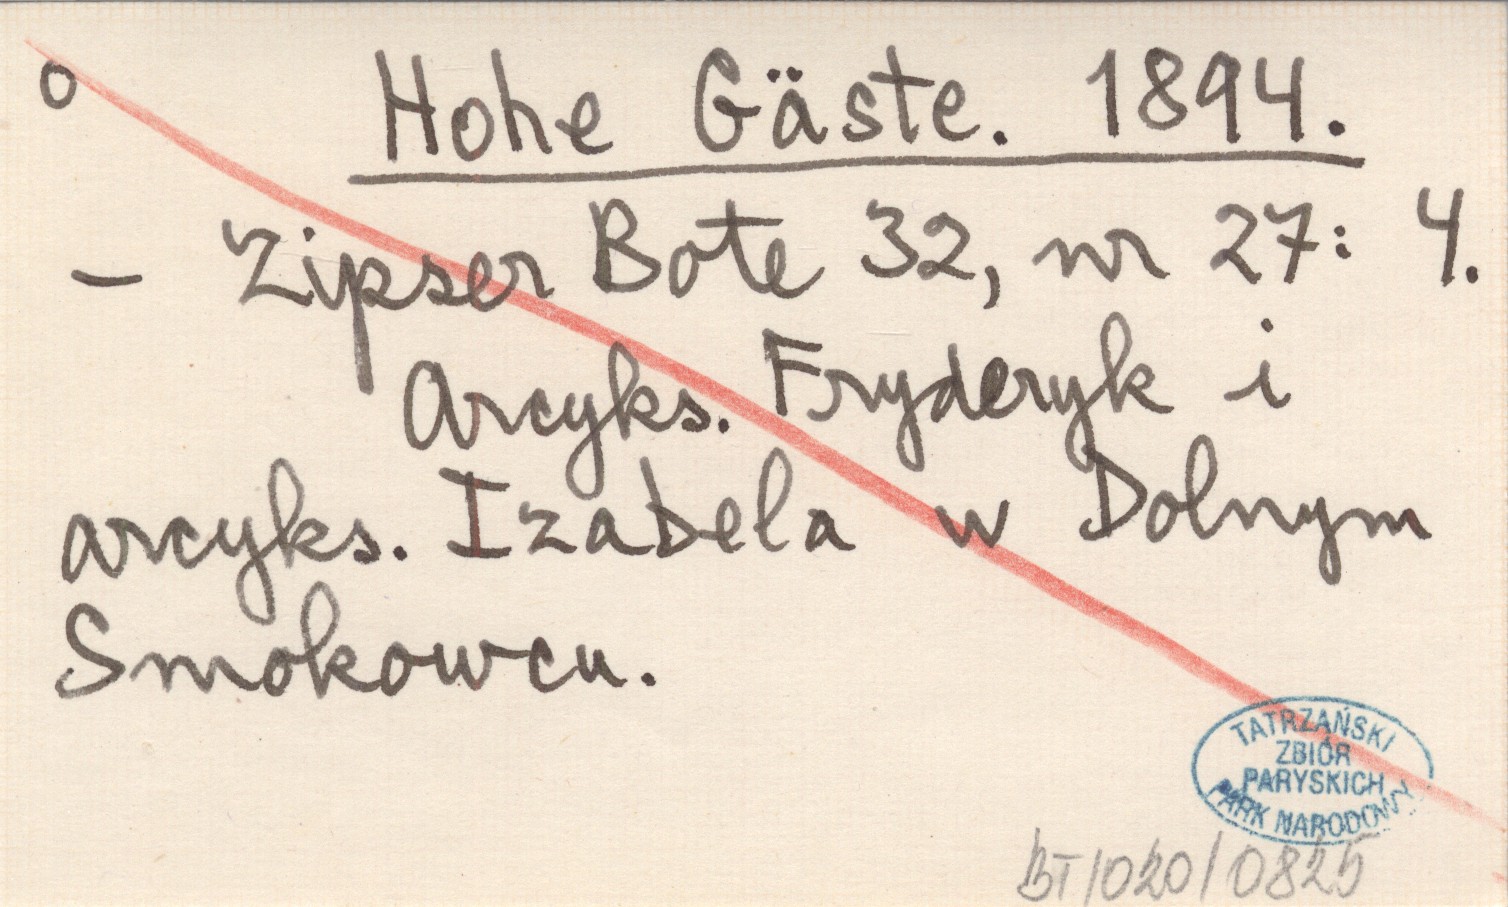 o Hohe Gäste. 1894.
– Zipser Bote 32, nr 27: 4.
Arcyks. Fryderyk i
arcyks. Izabela w Dolnym
Smokowcu.
TATRZAŃSKI
ZBIÓR
PARYSKICH
PARK NARODOWY
BT/020/0825